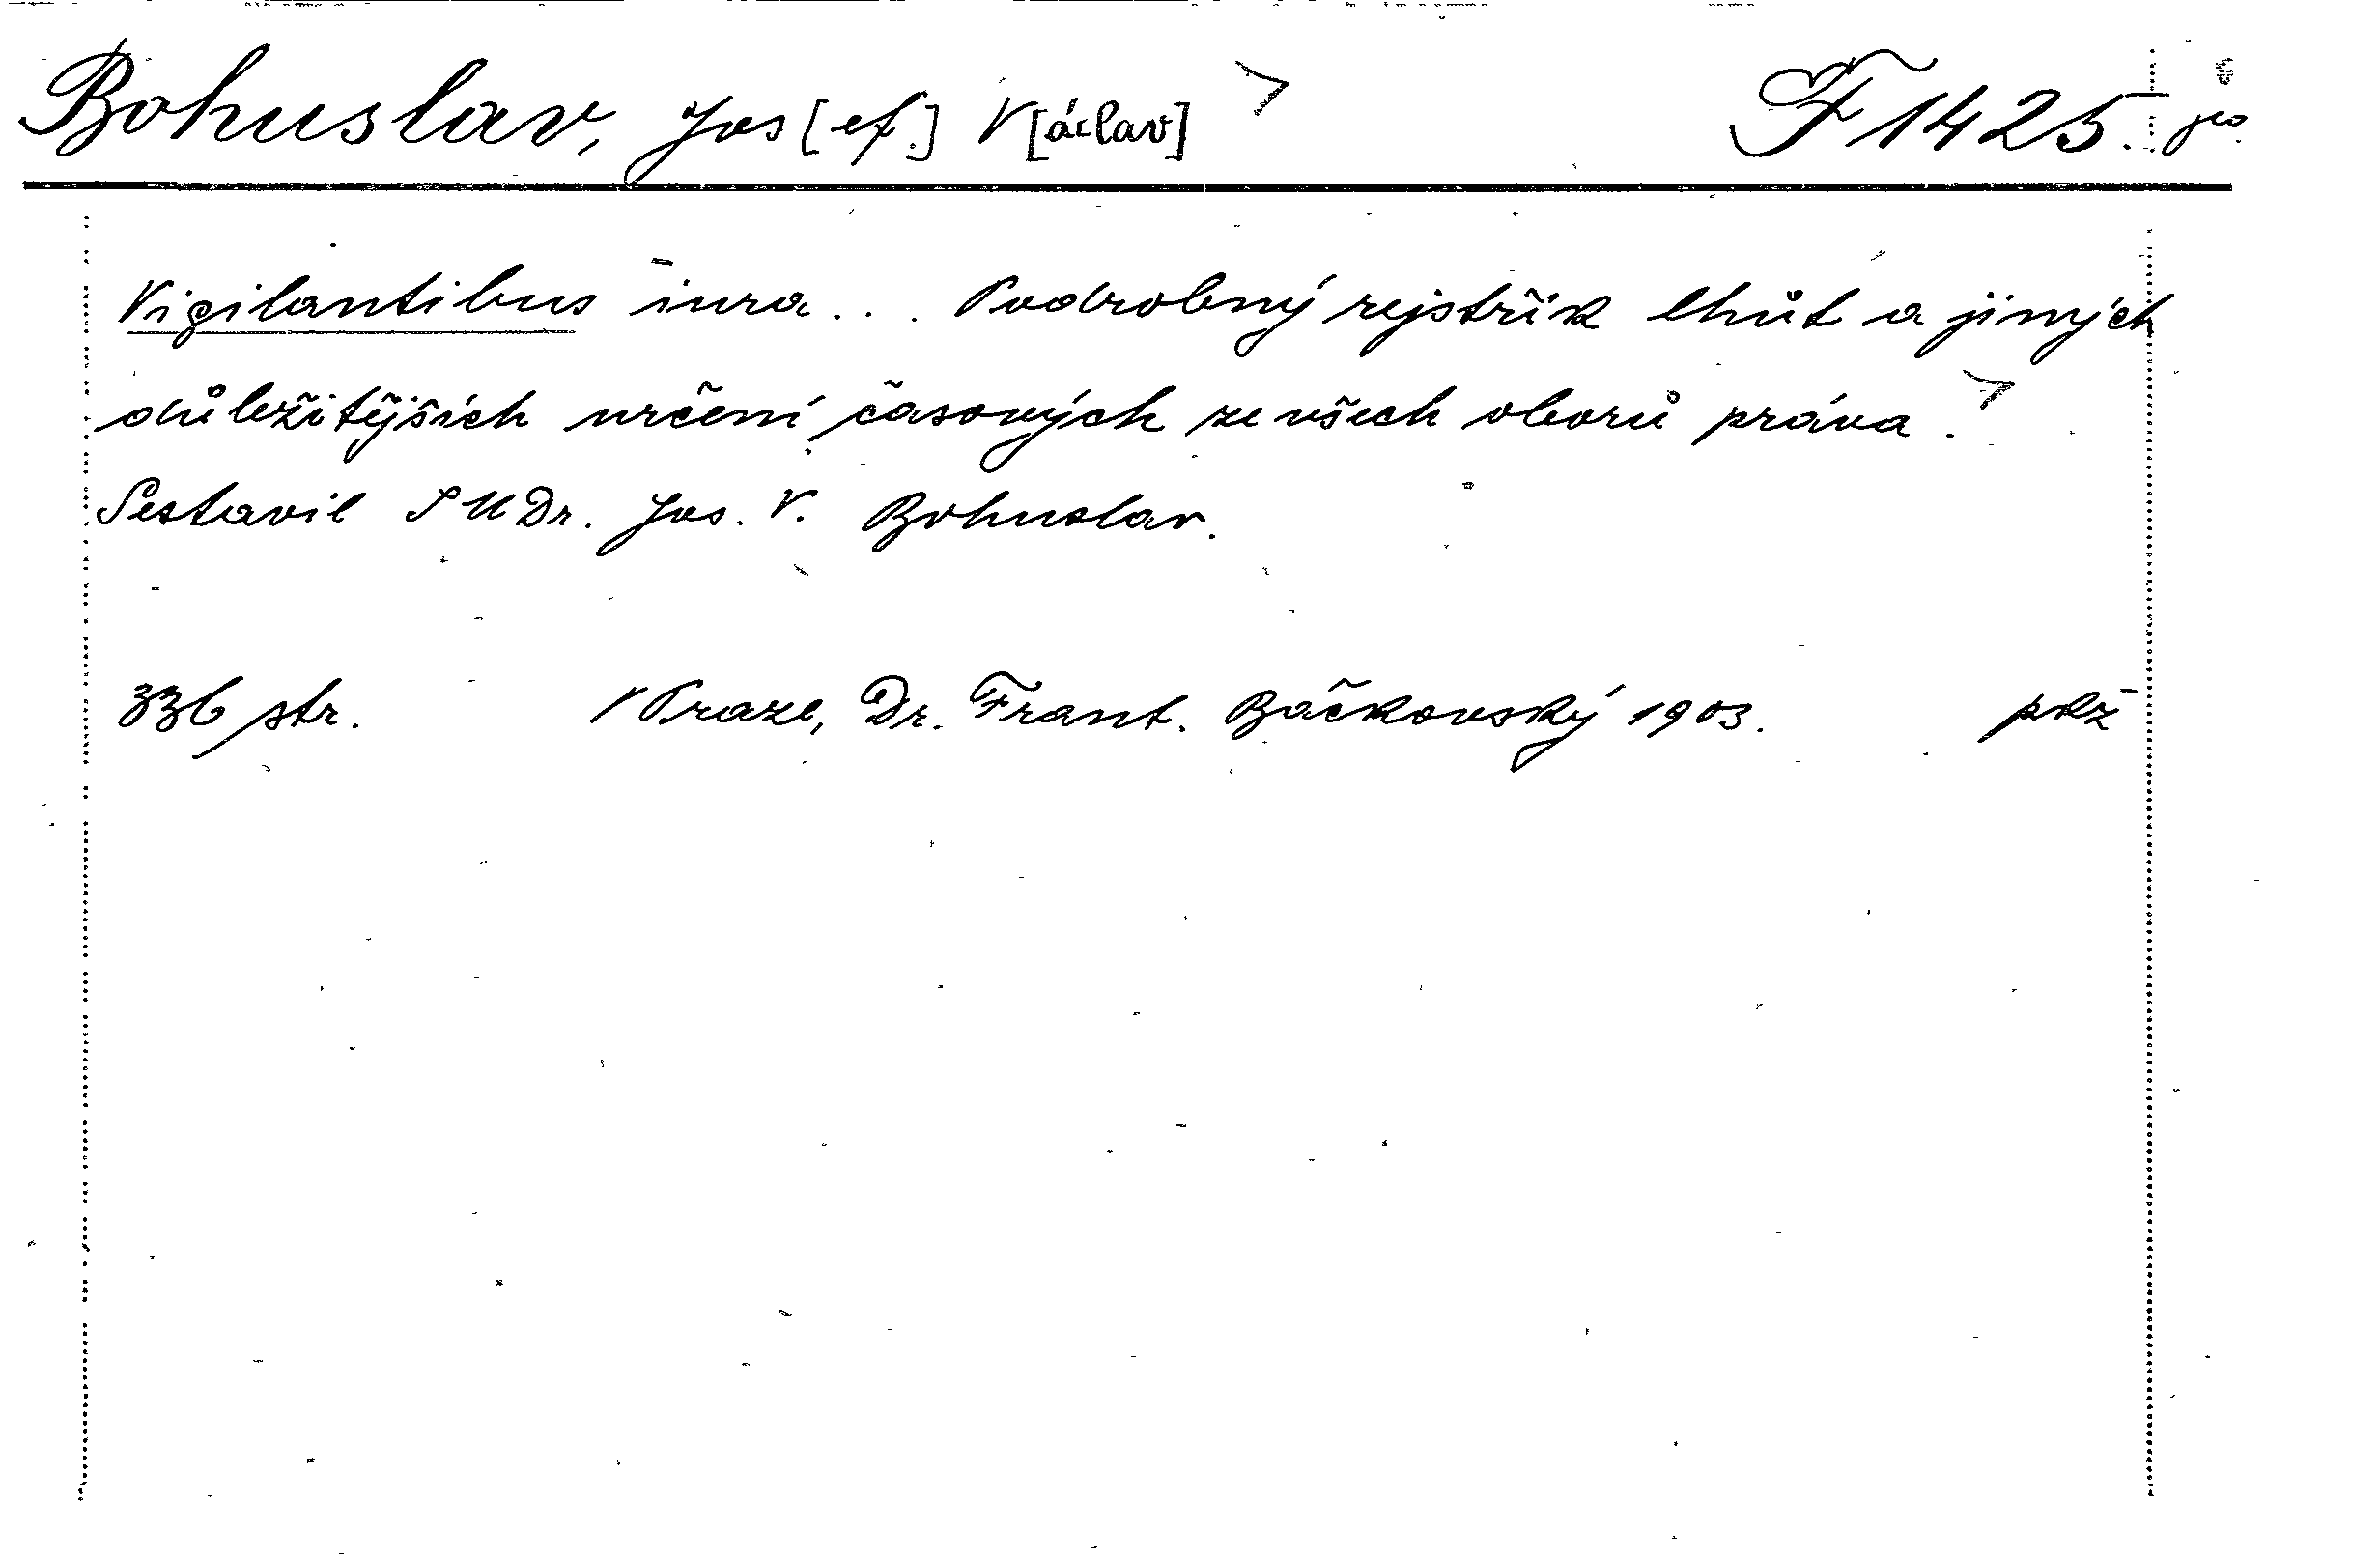 Bohuslav, Jos[ef.] V[áclav] F 1425.
Vigilantibus iura... Podrobný rejstřík lhůt a jiných
důležitějších určení časových ze všech oborů práva.
Sestavil JUDr. Jos. V. Bohuslav.
336 str. V Praze, Dr. Frant. Bačkovský 1903. pkž